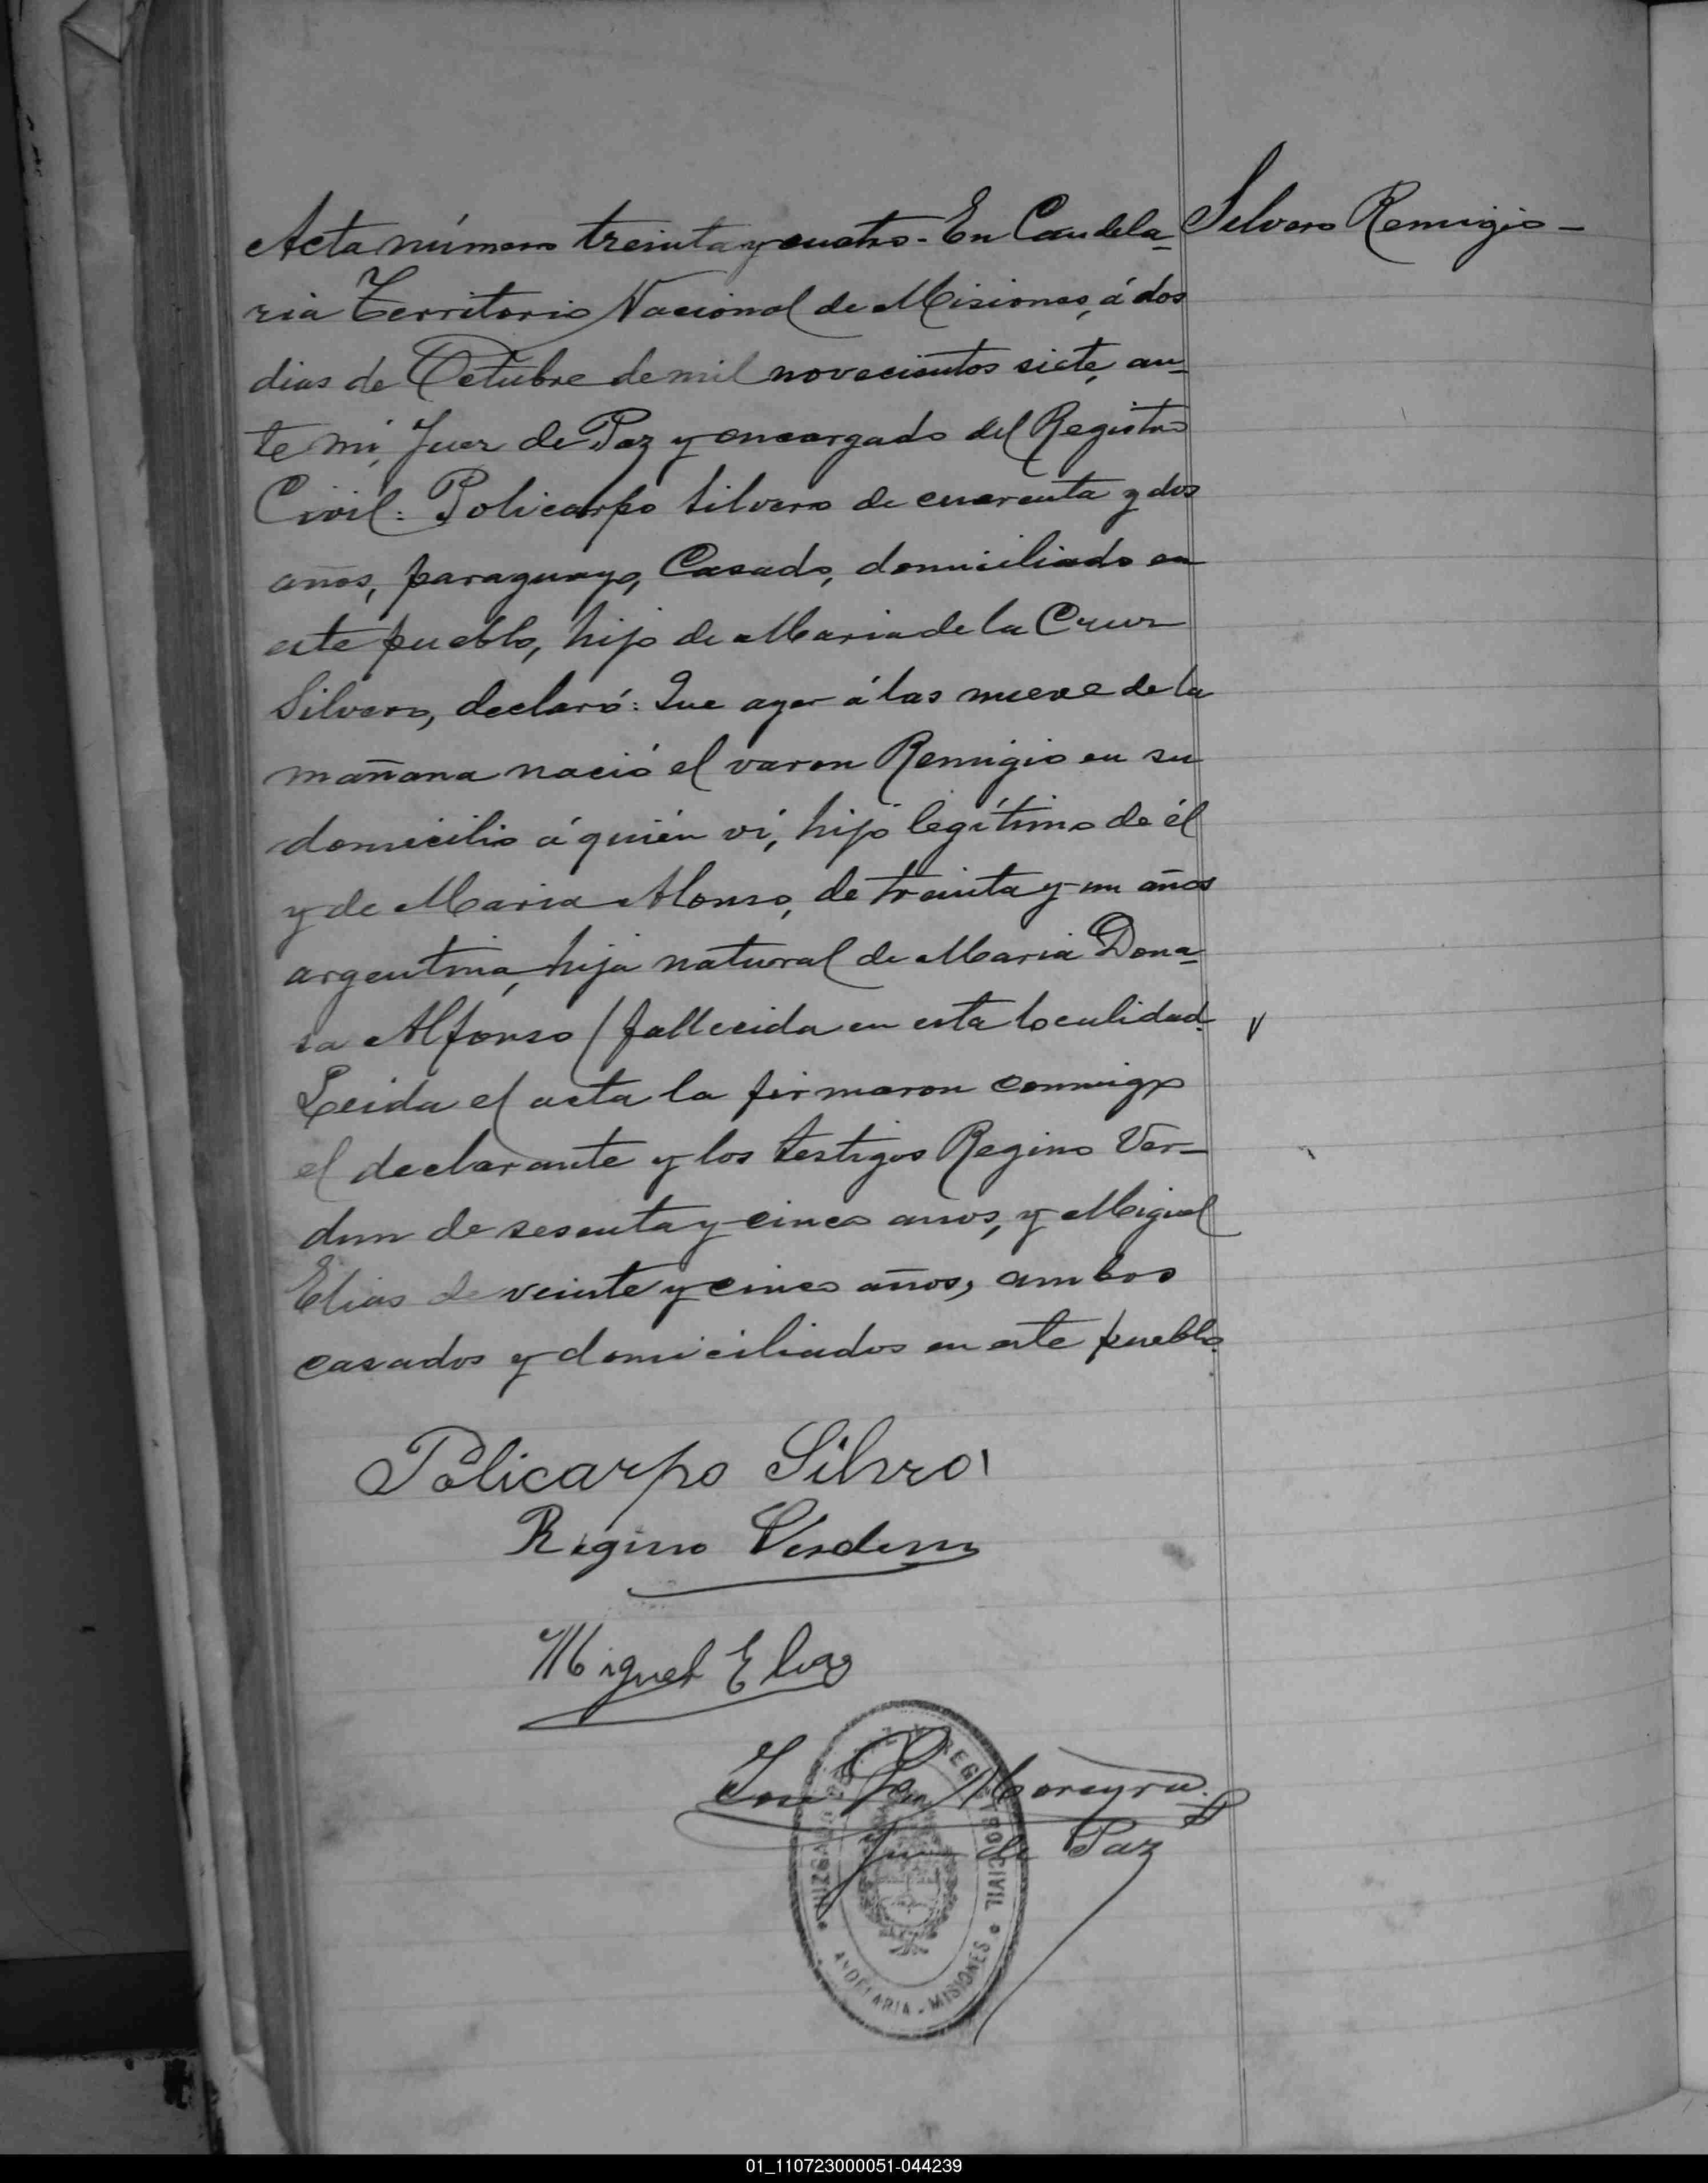 Acta número treinta y cuatro. En Candela=
Silvero Remigio -
ria Territorio Nacional de Misiones, á dos
dias de Octubre de mil novecientos siete, an=
te mi, Juez de Paz y encargado del Registro
Civil: Policarpo Silvero de cuarenta y dos
años, paraguayo, Casado, domiciliado en
este pueblo, hijo de Maria de la Cruz
Silvero, declaró: Que ayer á las nueve de la
mañana nació el varon Remigio en su
domicilio á quién ví, hijo legítimo de él
y de Maria Alonso, de treinta y un años
argentina, hija natural de Maria Dona=
ta Alfonso (fallecida en esta localidad.
Leida el acta la firmaron conmigo
el declarante y los testigos Regino Ver-
dun de sesenta y cinco anos, y Miguel
Elias de veinte y cinco años, ambos
casados y domiciliados en este pueblo.
Policarpo Silvro
Regino Verdun
Miguel Elias
José Moreyra.
Juez de Paz
REGISTRO CIVIL
ANDELARIA - MISIONES
01_110723000051-044239